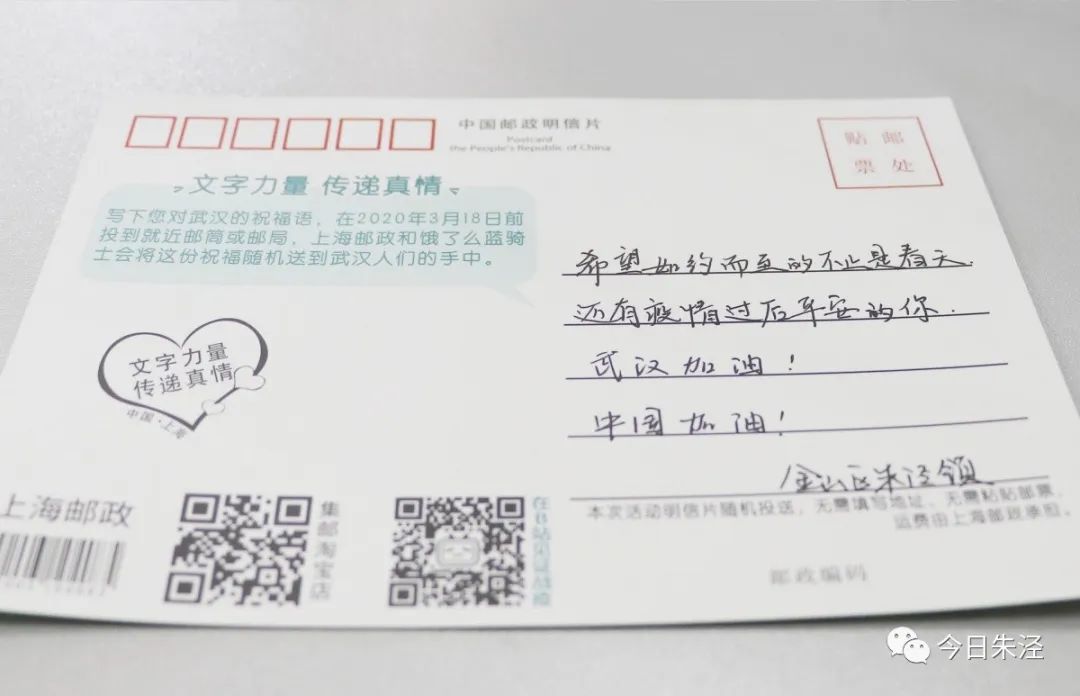 中国邮政明信片
Postcard
the People's Republic of China
贴 邮
票 处
文字力量 传递真情
写下您对武汉的祝福语，在2020年3月18日前
投到就近邮筒或邮局，上海邮政和饿了么蓝骑
士会将这份祝福随机送到武汉人们的手中。
希望如约而至的不止是春天.
还有疫情过后平安的你.
武汉加油！
中国加油！
金山区朱泾镇
文字力量
传递真情
中国·上海
上海邮政
集邮淘宝店
本次活动明信片随机投送，无需填写地址、无需粘贴邮票，
运费由上海邮政承担。
邮政编码
今日朱泾